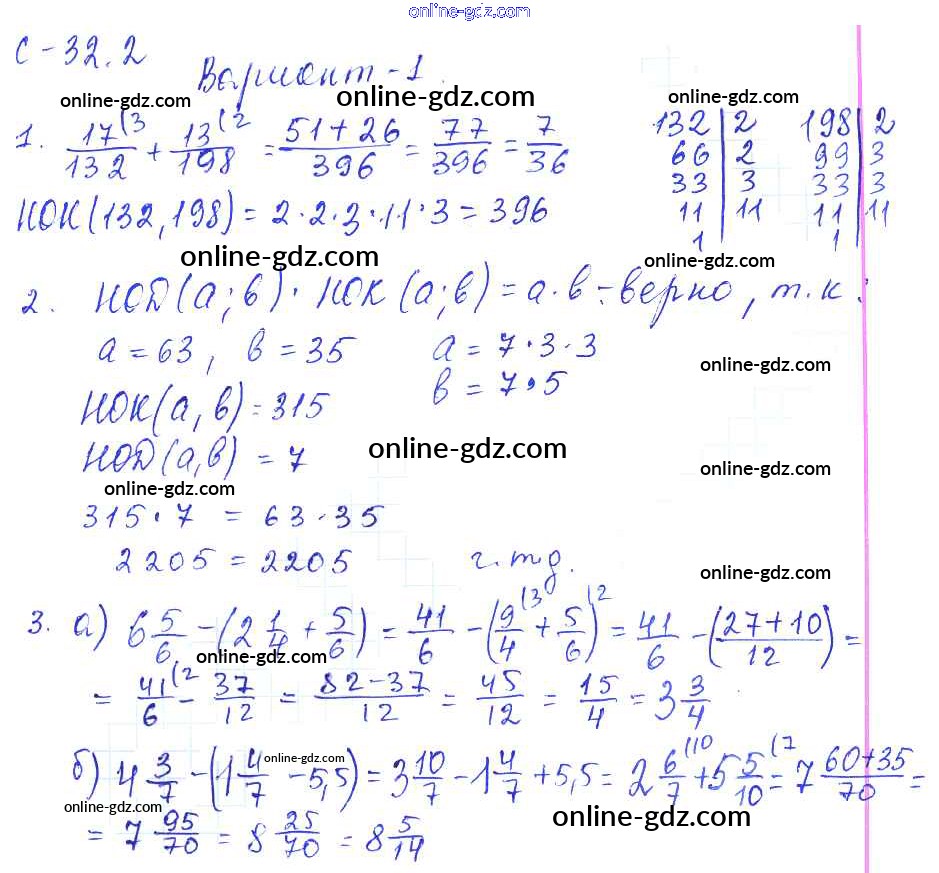 online-gdz.com
С-32.2
Вариант-1.
online-gdz.com online-gdz.com online-gdz.com
1. 17(3/132 + 13(2/198 = (51+26)/396 = 77/396 = 7/36
132 | 2
66 | 2
33 | 3
11 | 11
1
198 | 2
99 | 3
33 | 3
11 | 11
1
НОК(132,198) = 2·2·3·11·3 = 396
online-gdz.com
2. НОД(а;в)·НОК(а;в) = а·в - верно, т.к:
а = 63, в = 35 а = 7·3·3
online-gdz.com
в = 7·5
НОК(а,в) = 315
НОД(а,в) = 7
online-gdz.com
online-gdz.com
online-gdz.com
315·7 = 63·35
2205 = 2205 ч.тд.
online-gdz.com
3. а) 6 5/6 - (2 1/4 + 5/6) = 41/6 - (9/4(3 + 5/6(2) = 41/6 - ((27+10)/12) =
online-gdz.com
= 41/6(2 - 37/12 = (82-37)/12 = 45/12 = 15/4 = 3 3/4
б) 4 3/7 - (1 4/7 - 5,5) = 3 10/7 - 1 4/7 + 5,5 = 2 6/7(10 + 5 5/10(7 = 7 (60+35)/70 =
online-gdz.com
online-gdz.com
= 7 95/70 = 8 25/70 = 8 5/14
online-gdz.com